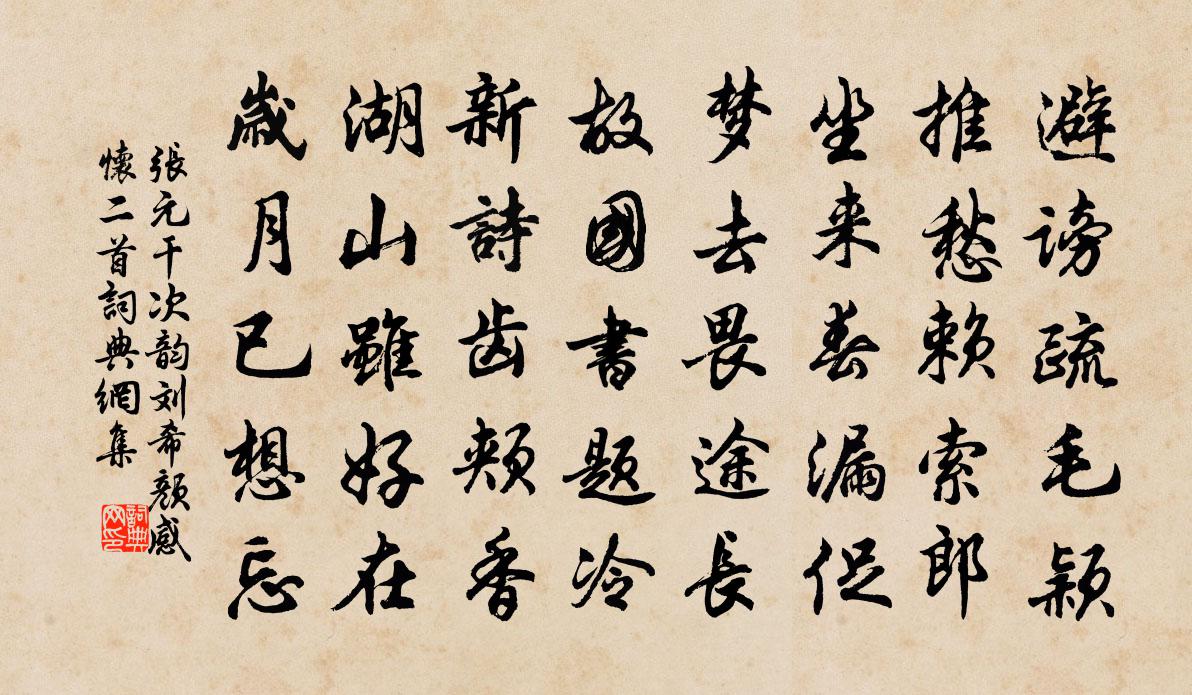 避謗疏毛颖
推愁赖索郎
坐来春漏促
梦去畏途長
故國書题冷
新詩齿颊香
湖山雖好在
歲月已想忘
張元干次韵刘希颜感
懷二首詞典網集
詞典
网印